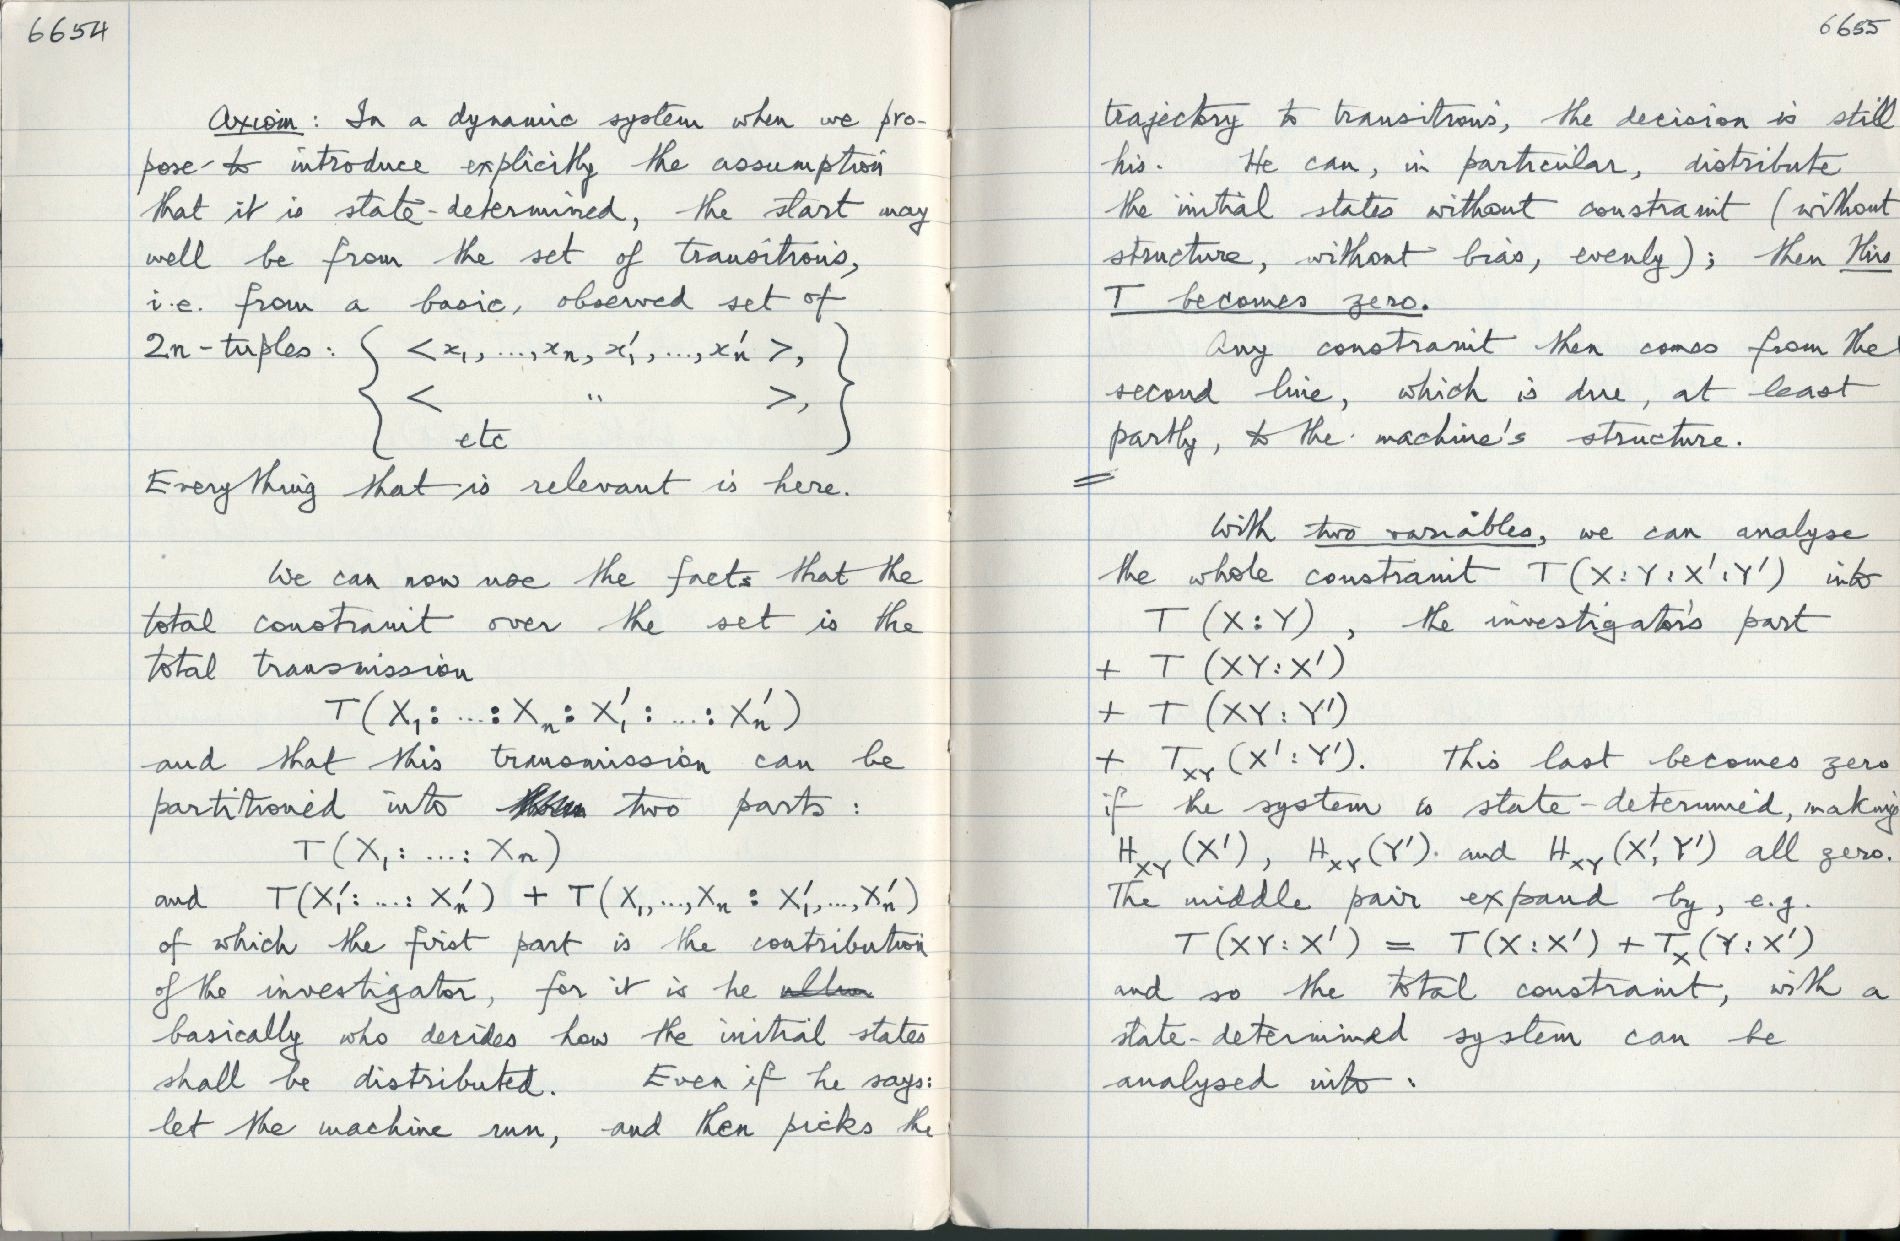 6654
Axiom: In a dynamic system when we pro-
pose to introduce explicitly the assumption
that it is state-determined, the start may
well be from the set of transitions,
i.e. from a basic, observed set of
2n-tuples: { <x₁, ..., xₙ, x₁′, ..., xₙ′ >,
< " >,
etc }
Everything that is relevant is here.
We can now use the facts that the
total constraint over the set is the
total transmission
T(X₁: ...: Xₙ: X₁′: ...: Xₙ′)
and that this transmission can be
partitioned into two parts:
T(X₁: ...: Xₙ)
and T(X₁′: ...: Xₙ′) + T(X₁, ..., Xₙ : X₁′, ..., Xₙ′)
of which the first part is the contribution
of the investigator, for it is he
basically who decides how the initial states
shall be distributed. Even if he says:
let the machine run, and then picks the
6655
trajectory to transitions, the decision is still
his. He can, in particular, distribute
the initial states without constraint (without
structure, without bias, evenly); then this
T becomes zero.
Any constraint then comes from the
second line, which is due, at least
partly, to the machine's structure.
With two variables, we can analyse
the whole constraint T(X:Y:X′:Y′) into
T (X:Y), the investigator's part
+ T (XY:X′)
+ T (XY:Y′)
+ T_XY (X′:Y′). This last becomes zero
if the system is state-determined, making
H_XY (X′), H_XY (Y′) and H_XY (X′, Y′) all zero.
The middle pair expand by, e.g.
T(XY:X′) = T(X:X′) + T_X (Y:X′)
and so the total constraint, with a
state-determined system can be
analysed into: